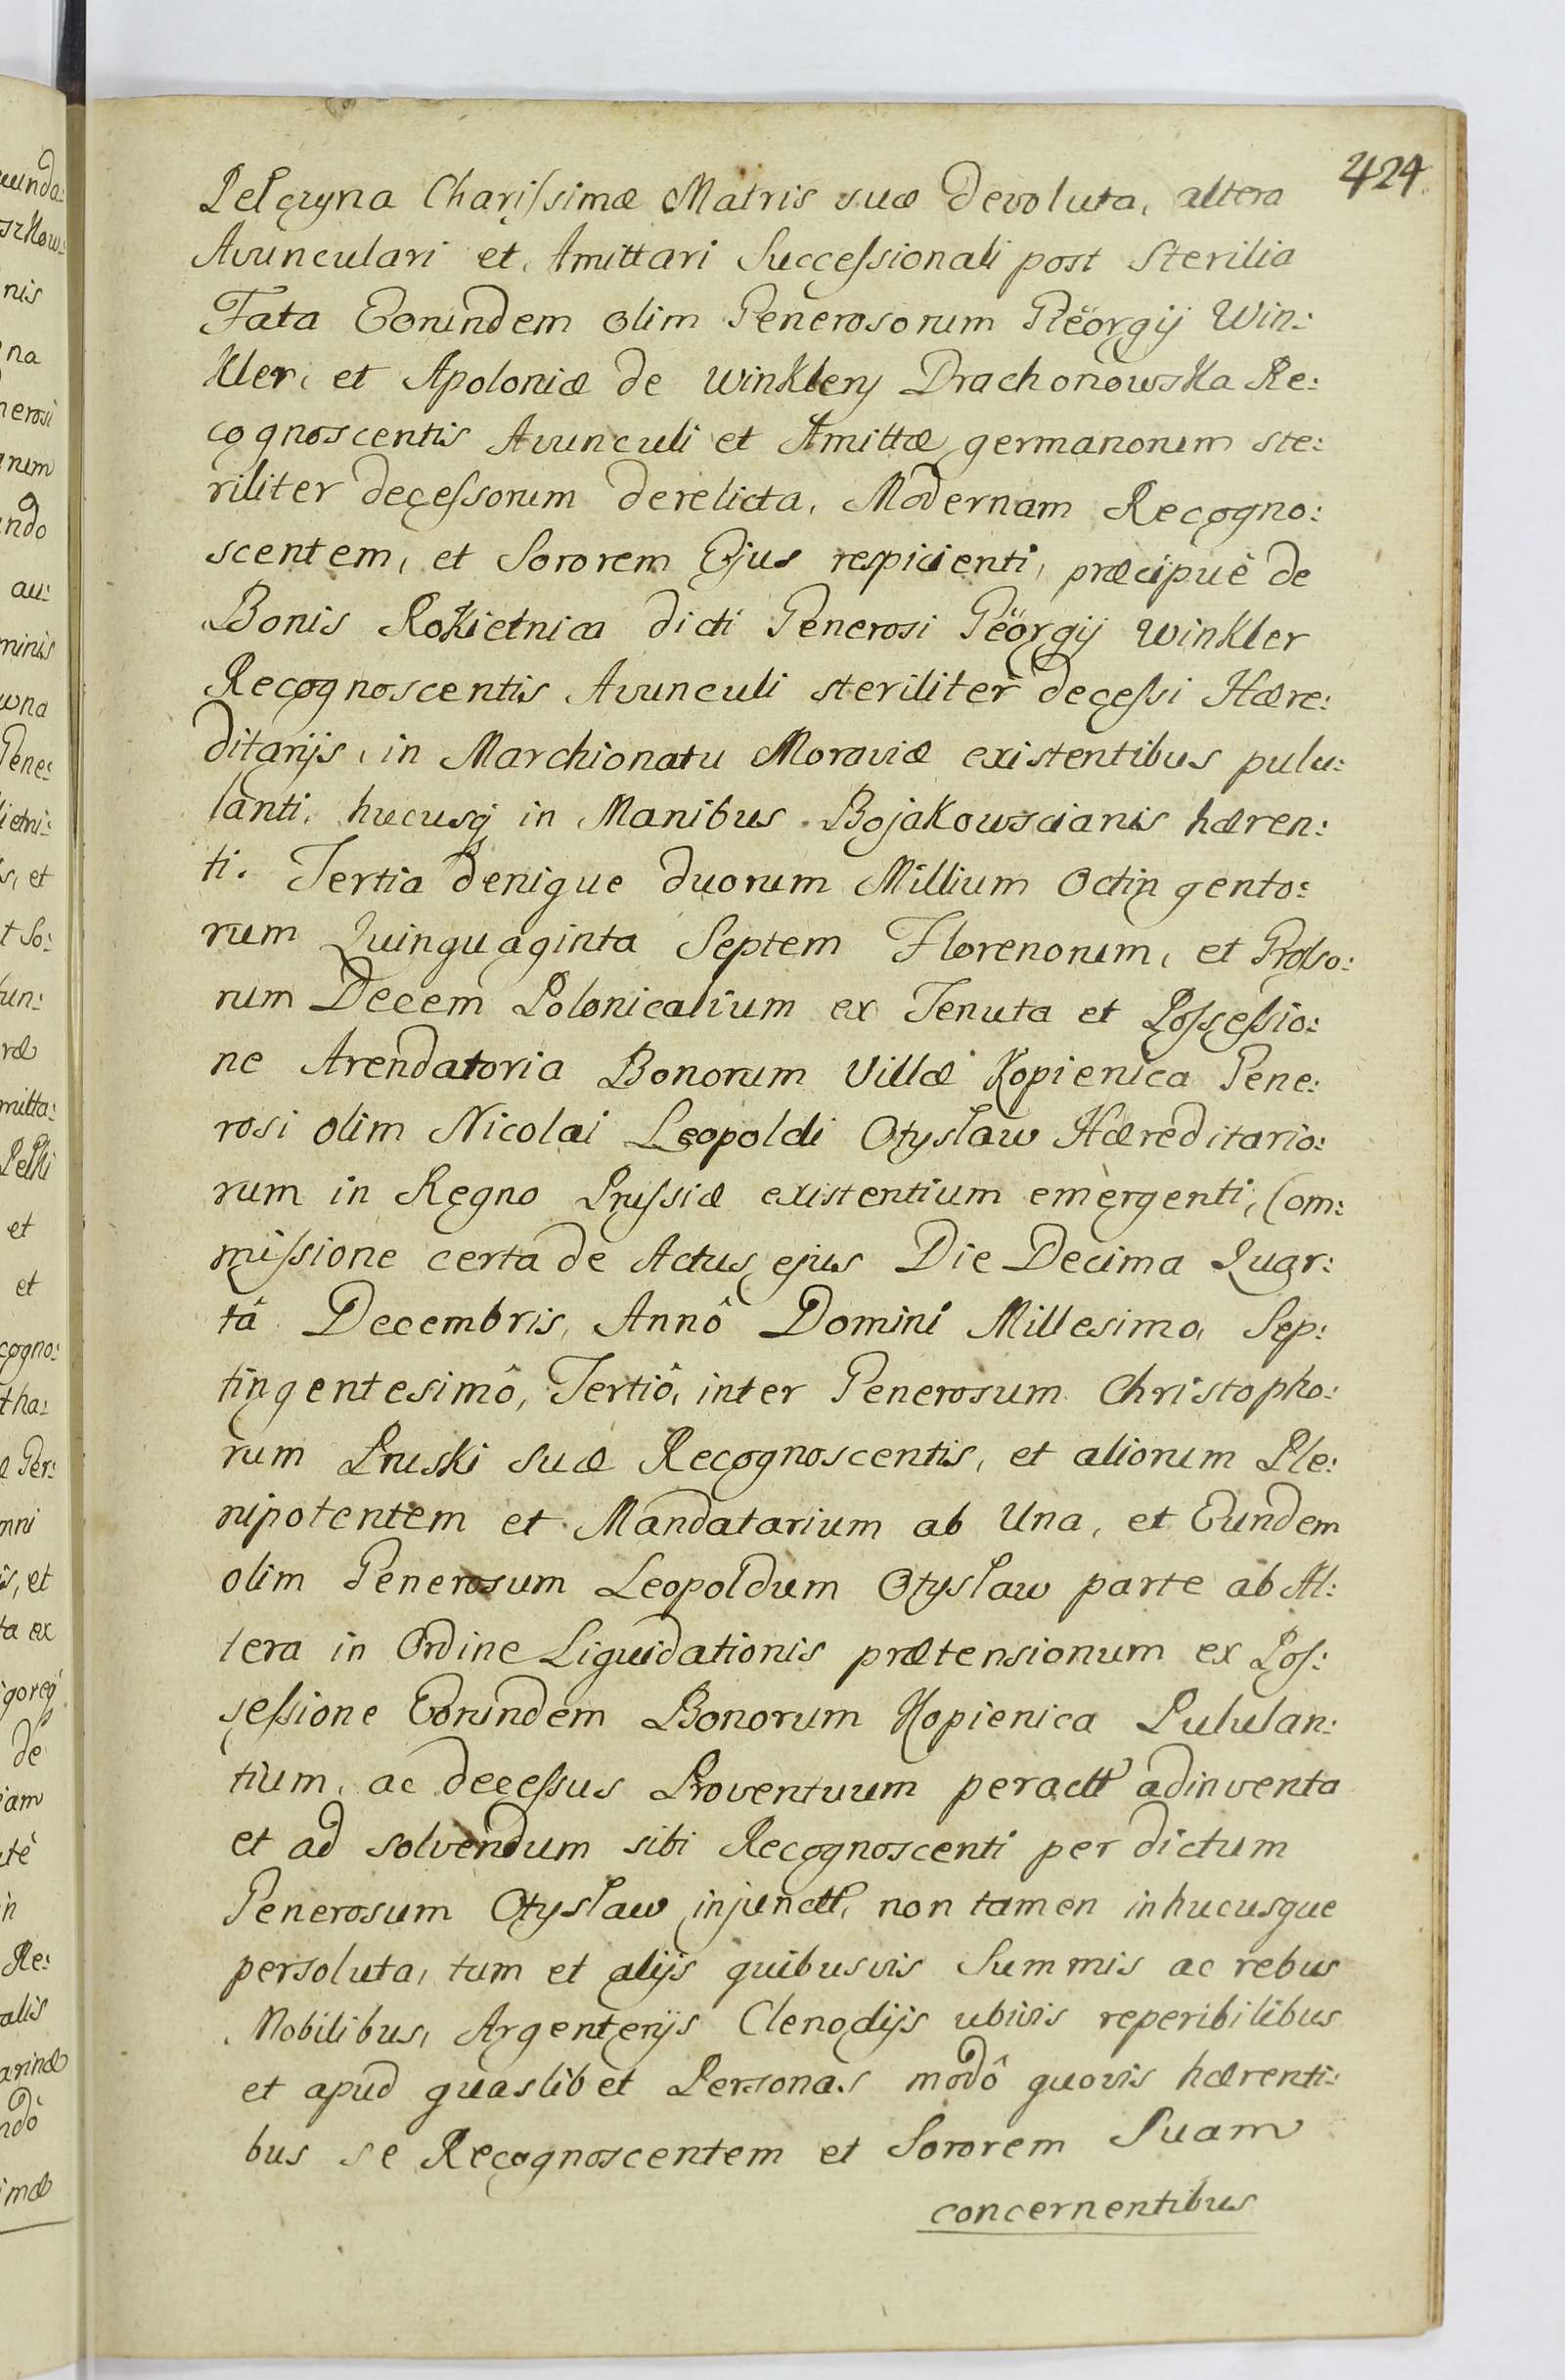 424
Pelczyna Charissimæ Matris suæ devoluta, altera
Avunculari et Amittari Successionali post Sterilia
Fata Eorundem olim Generosorum Gëorgij Win:
Kler, et Apoloniæ de Winklery Drachonowska Re:
cognoscentis Avunculi et Amittæ germanorum ste:
riliter decessorum derelicta, Modernam Recogno:
scentem, et Sororem Ejus respicienti, præcipuè de
Bonis Rokietnica dicti Generosi Gëorgij Winkler
Recognoscentis Avunculi steriliter decessi Hære:
ditarijs, in Marchionatu Moraviæ existentibus pulu:
lanti, hucusq in Manibus Bojakowscianis hæren:
ti. Tertia denique duorum Millium Octingento:
rum Quinquaginta Septem Florenorum, et Grosso:
rum Decem Polonicalium ex Tenuta et Possessio:
ne Arendatoria Bonorum Villæ Kopienica Gene:
rosi olim Nicolai Leopoldi Otyslaw Hæreditario:
rum in Regno Prussiæ existentium emergenti, Com:
missione certa de Actus ejus Die Decima Quar:
tâ Decembris, Annô Domini Millesimo, Sep:
tingentesimô, Tertiô, inter Generosum Christopho:
rum Pruski suæ Recognoscentis, et aliorum Ple:
nipotentem et Mandatarium ab Una, et Eundem
olim Generosum Leopoldum Otyslaw parte ab Al:
tera in Ordine Liquidationis prætensionum ex Pos:
sessione Eorundem Bonorum Kopienica Pululan:
tium, ac decessus Proventuum peractt adinventa
et ad solvendum sibi Recognoscenti per dictum
Generosum Otyslaw injunctt, non tamen inhucusque
persoluta, tum et alijs quibusvis Summis ac rebus
Mobilibus, Argenterijs Clenodijs ubivis reperibilibus
et apud quaslibet Personas modô quovis hærenti:
bus se Recognoscentem et Sororem Suam
concernentibus